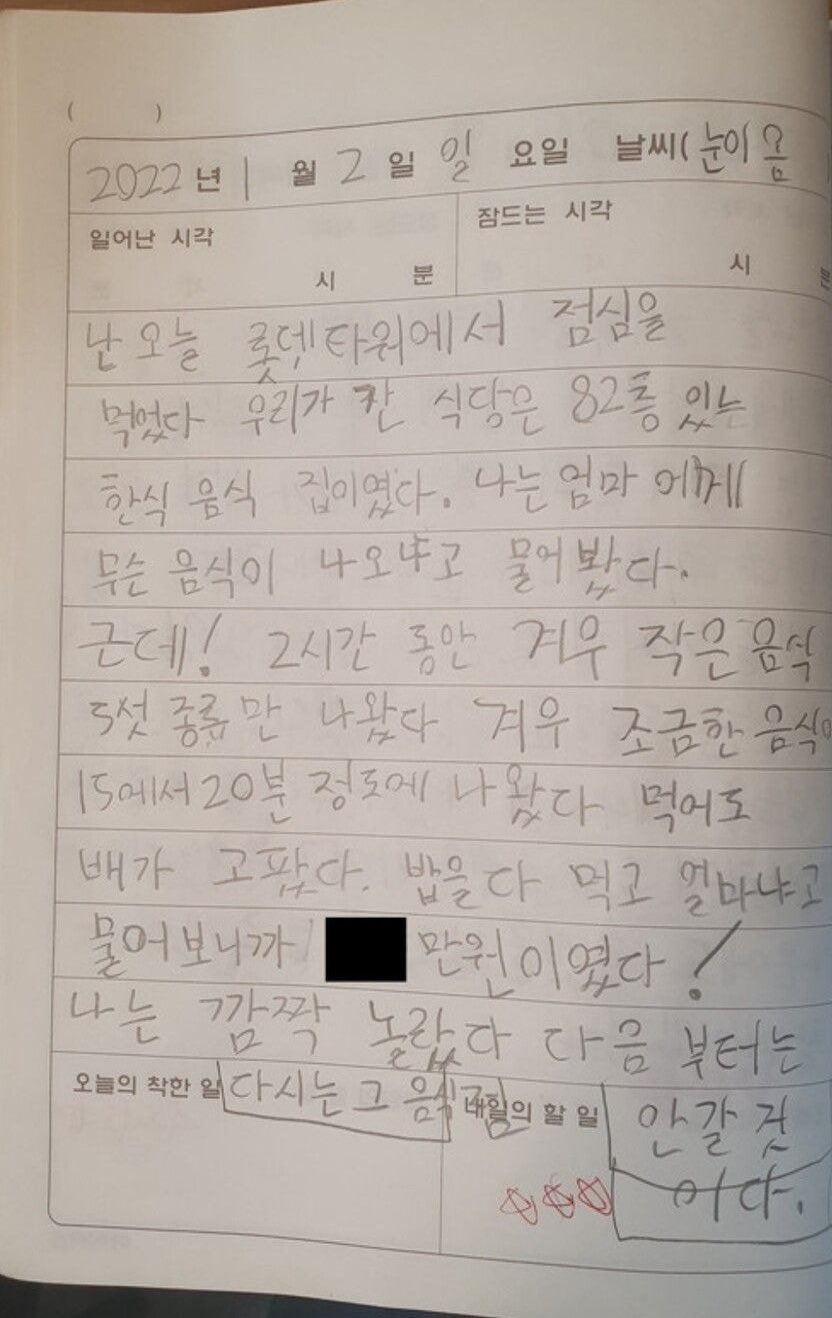 ( )
2022 년 1 월 2 일 일 요일 날씨( 눈이 옴
일어난 시각 잠드는 시각
시 분 시
난 오늘 롯데타워에서 점심을
먹었다 우리가 간 식당은 82층 있는
한식 음식 집이였다. 나는 엄마 에게
무슨 음식이 나오냐고 물어봤다.
근데! 2시간 동안 겨우 작은 음식
5섯 종류만 나왔다 겨우 조금한 음식이
15에서 20분 정도에 나왔다 먹어도
배가 고팠다. 밥을 다 먹고 얼마냐고
물어보니까 만원이였다!
나는 깜짝 놀랐다 다음 부터는
오늘의 착한 일 다시는 그 음식집 내일의 할 일 안갈 것
이다.